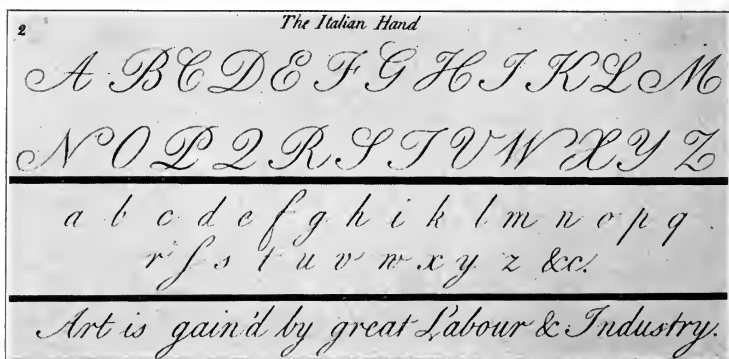 2
The Italian Hand
A B C D E F G H I K L M
N O P Q R S T U V W X Y Z
a b c d e f g h i k l m n o p q
r ſ s t u v w x y z &c.
Art is gain'd by great Labour & Industry.